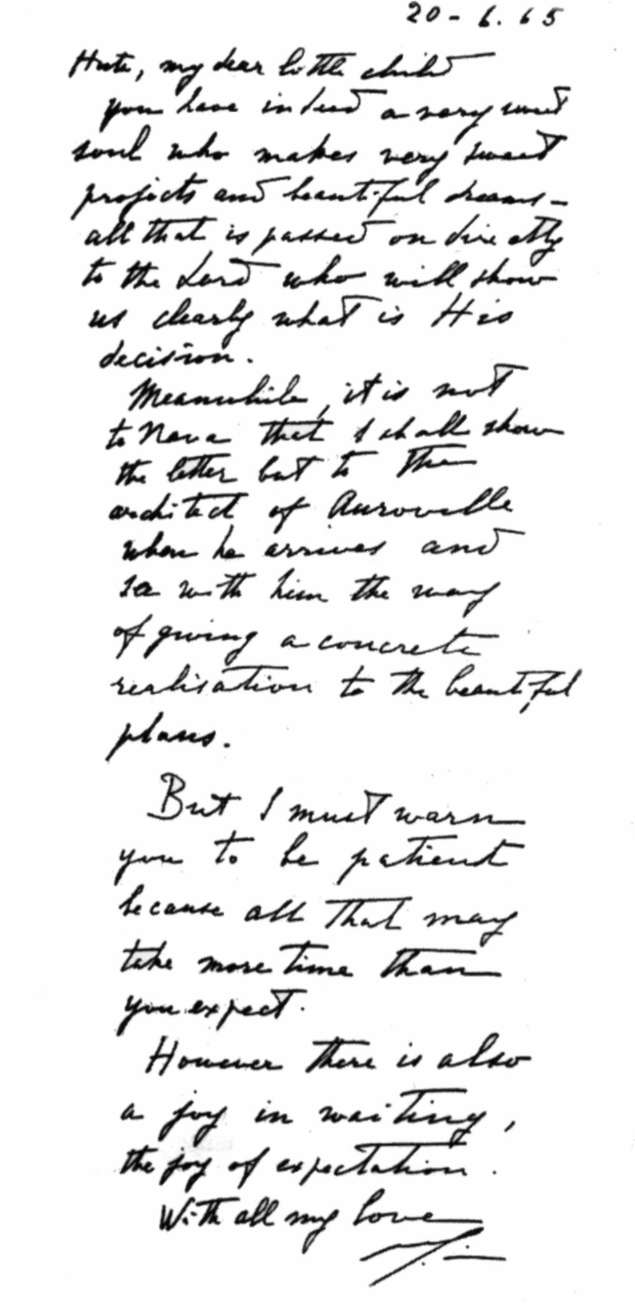 20 - 6. 65
Huta, my dear little child
you have indeed a very sweet
soul who makes very sweet
projects and beautiful dreams -
all that is passed on directly
to the Lord who will show
us clearly what is His
decision.
Meanwhile, it is not
to Nava that I shall show
the letter but to the
architect of Auroville
when he arrives and
see with him the way
of giving a concrete
realisation to the beautiful
plans.
But I must warn
you to be patient
because all that may
take more time than
you expect.
However there is also
a joy in waiting,
the joy of expectation.
With all my love